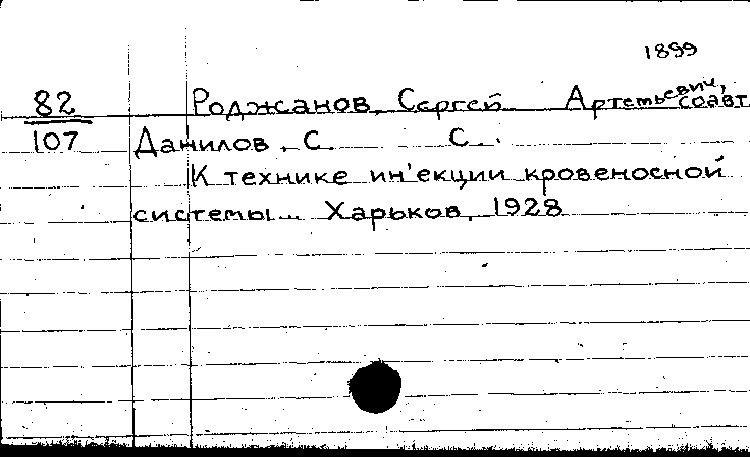 1899
82 Роджанов, Сергей Артемьевич, соавт
107 Данилов, С. С.
К технике ин'екции кровеносной
системы... Харьков, 1928